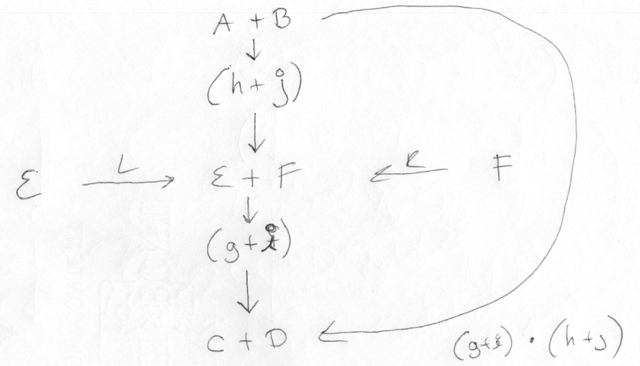 A + B
(h + j)
E L E + F R F
(g + i)
C + D
(g+i) · (h+j)